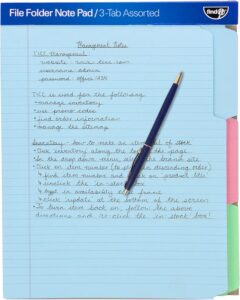 File Folder Note Pad / 3-Tab Assorted
find It
Management Notes
Management
website
username admin
password office
is used for the following
- manage inventory
- use promo codes
- find order information
- manage the sitemap
Inventory - how to make an item out of stock
Click inventory along the top of the page
In the drop down menu, click the brand site
Click on item number (to put in descending order)
find item number and click on product title
unclick the in stock box
type in availability time frame
click update at the bottom of the screen
To turn item back on, follow the above
directions and re-click the in stock box!